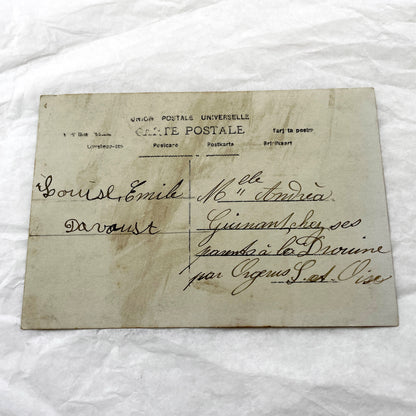 UNION POSTALE UNIVERSELLE
CARTE POSTALE
Postcard Postkarta Briefkaart
Louise, Emile
Davoust
Mlle Andrèa
Guinant chez ses
parents à la Drouine
par Orgerus S. et Oise